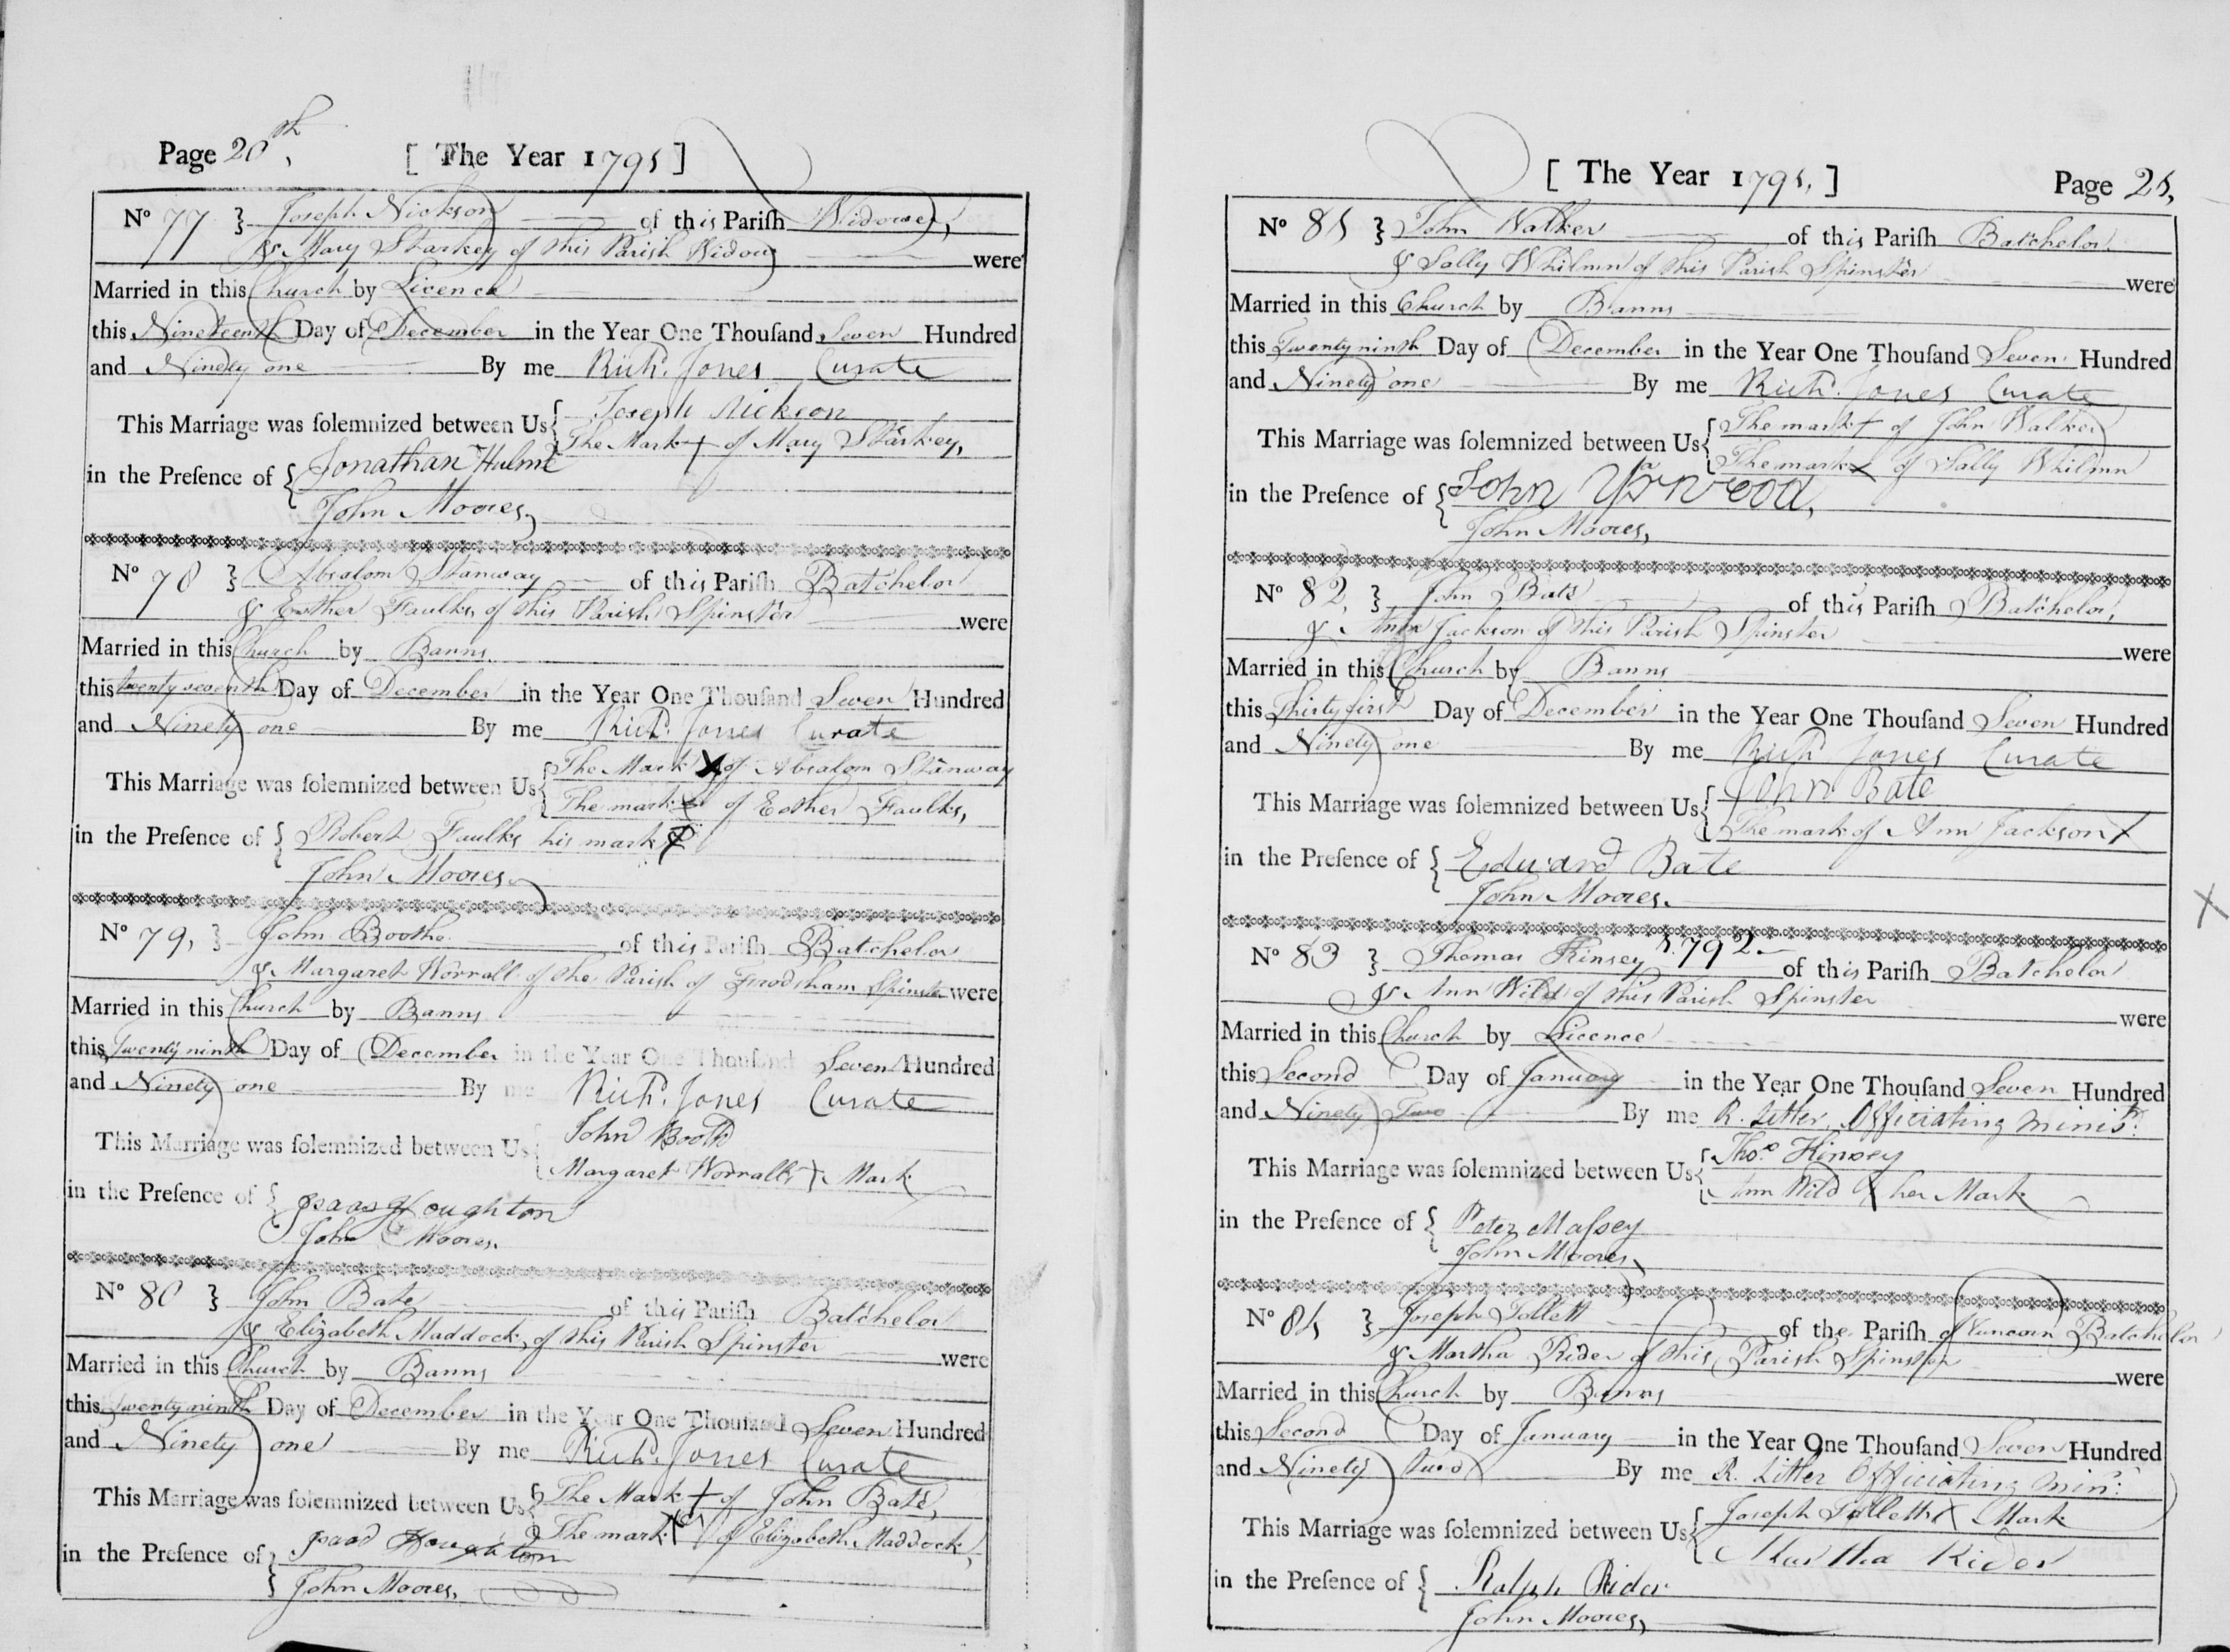 Page 20th, [ The Year 1791 ]
No 77 } Joseph Nickson of this Pariſh Widower,
& Mary Starkey of this Parish Widow were
Married in this Church by Licence
this Nineteenth Day of December in the Year One Thouſand Seven Hundred
and Ninety one By me Richd. Jones Curate
This Marriage was ſolemnized between Us { Joseph Nickson
The Mark + of Mary Starkey,
in the Preſence of { Jonathan Hulme
John Moores,
No 78 } Absalom Stanway of this Pariſh Batchelor
& Esther Faulks, of this Parish Spinster were
Married in this Church by Banns
this twenty seventh Day of December in the Year One Thouſand Seven Hundred
and Ninety one By me Richd. Jones Curate
This Marriage was ſolemnized between Us { The Mark X of Absalom Stanway
The mark X of Esther Faulks,
in the Preſence of { Robert Faulks his mark X
John Moores,
No 79, } John Boothe of this Pariſh Batchelor
& Margaret Worrall of the Parish of Frodsham Spinster were
Married in this Church by Banns
this Twenty ninth Day of December in the Year One Thouſand Seven Hundred
and Ninety one By me Richd. Jones Curate
This Marriage was ſolemnized between Us { John Booth
Margaret Worralls + Mark
in the Preſence of { Isaac Houghton
John Moores,
No 80 } John Bate of this Pariſh Batchelor
& Elizabeth Maddock, of this Parish Spinster were
Married in this Church by Banns
this twenty ninth Day of December in the Year One Thouſand Seven Hundred
and Ninety one By me Richd. Jones Curate
This Marriage was ſolemnized between Us { The Mark + of John Bate,
The mark X of Elizabeth Maddock,
in the Preſence of { Isaac Houghton
John Moores,
[ The Year 1791, ] Page 21,
No 81 } John Walker of this Pariſh Batchelor
& Sally Whilmn of this Parish Spinster were
Married in this Church by Banns
this Twenty ninth Day of December in the Year One Thouſand Seven Hundred
and Ninety one By me Richd. Jones Curate
This Marriage was ſolemnized between Us { The mark + of John Walker
The mark x of Sally Whilmn
in the Preſence of { John Yarwood,
John Moores,
No 82, } John Bate of this Pariſh Batchelor,
& Ann Jackson of this Parish Spinster were
Married in this Church by Banns
this Thirty first Day of December in the Year One Thouſand Seven Hundred
and Ninety one By me Richd. Jones Curate
This Marriage was ſolemnized between Us { John Bate
The mark of Ann Jackson X
in the Preſence of { Edward Bate
John Moores,
1792
No 83 } Thomas Kinsey of this Pariſh Batchelor
& Ann Wild of this Parish Spinster were
Married in this Church by Licence
this Second Day of January in the Year One Thouſand Seven Hundred
and Ninety Two By me R. Litler, Officiating Minisr.
This Marriage was ſolemnized between Us { Thos. Kinsey
Ann Wild X her Mark
in the Preſence of { Peter Maſsey
John Moores,
No 84 } Joseph Tollett of the Pariſh of Runcorn Batchelor
& Martha Rider of this Parish Spinster were
Married in this Church by Banns
this Second Day of January in the Year One Thouſand Seven Hundred
and Ninety two By me R. Litler Officiating Minr.
This Marriage was ſolemnized between Us { Joseph Tolletts X Mark
Martha Rider
in the Preſence of { Ralph Rider
John Moores,